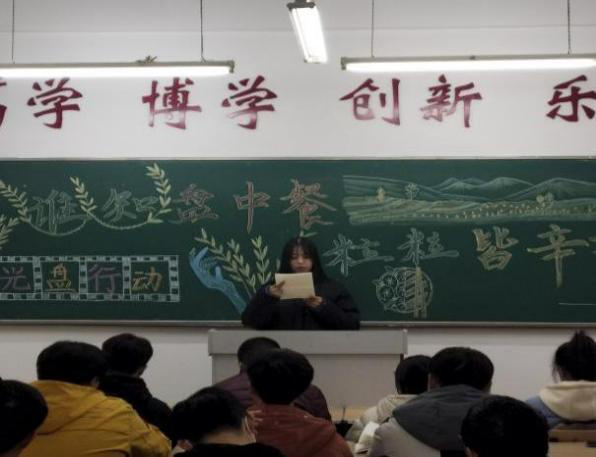 学 博学 创新 乐
谁知盘中餐
粒粒皆辛
光盘行动